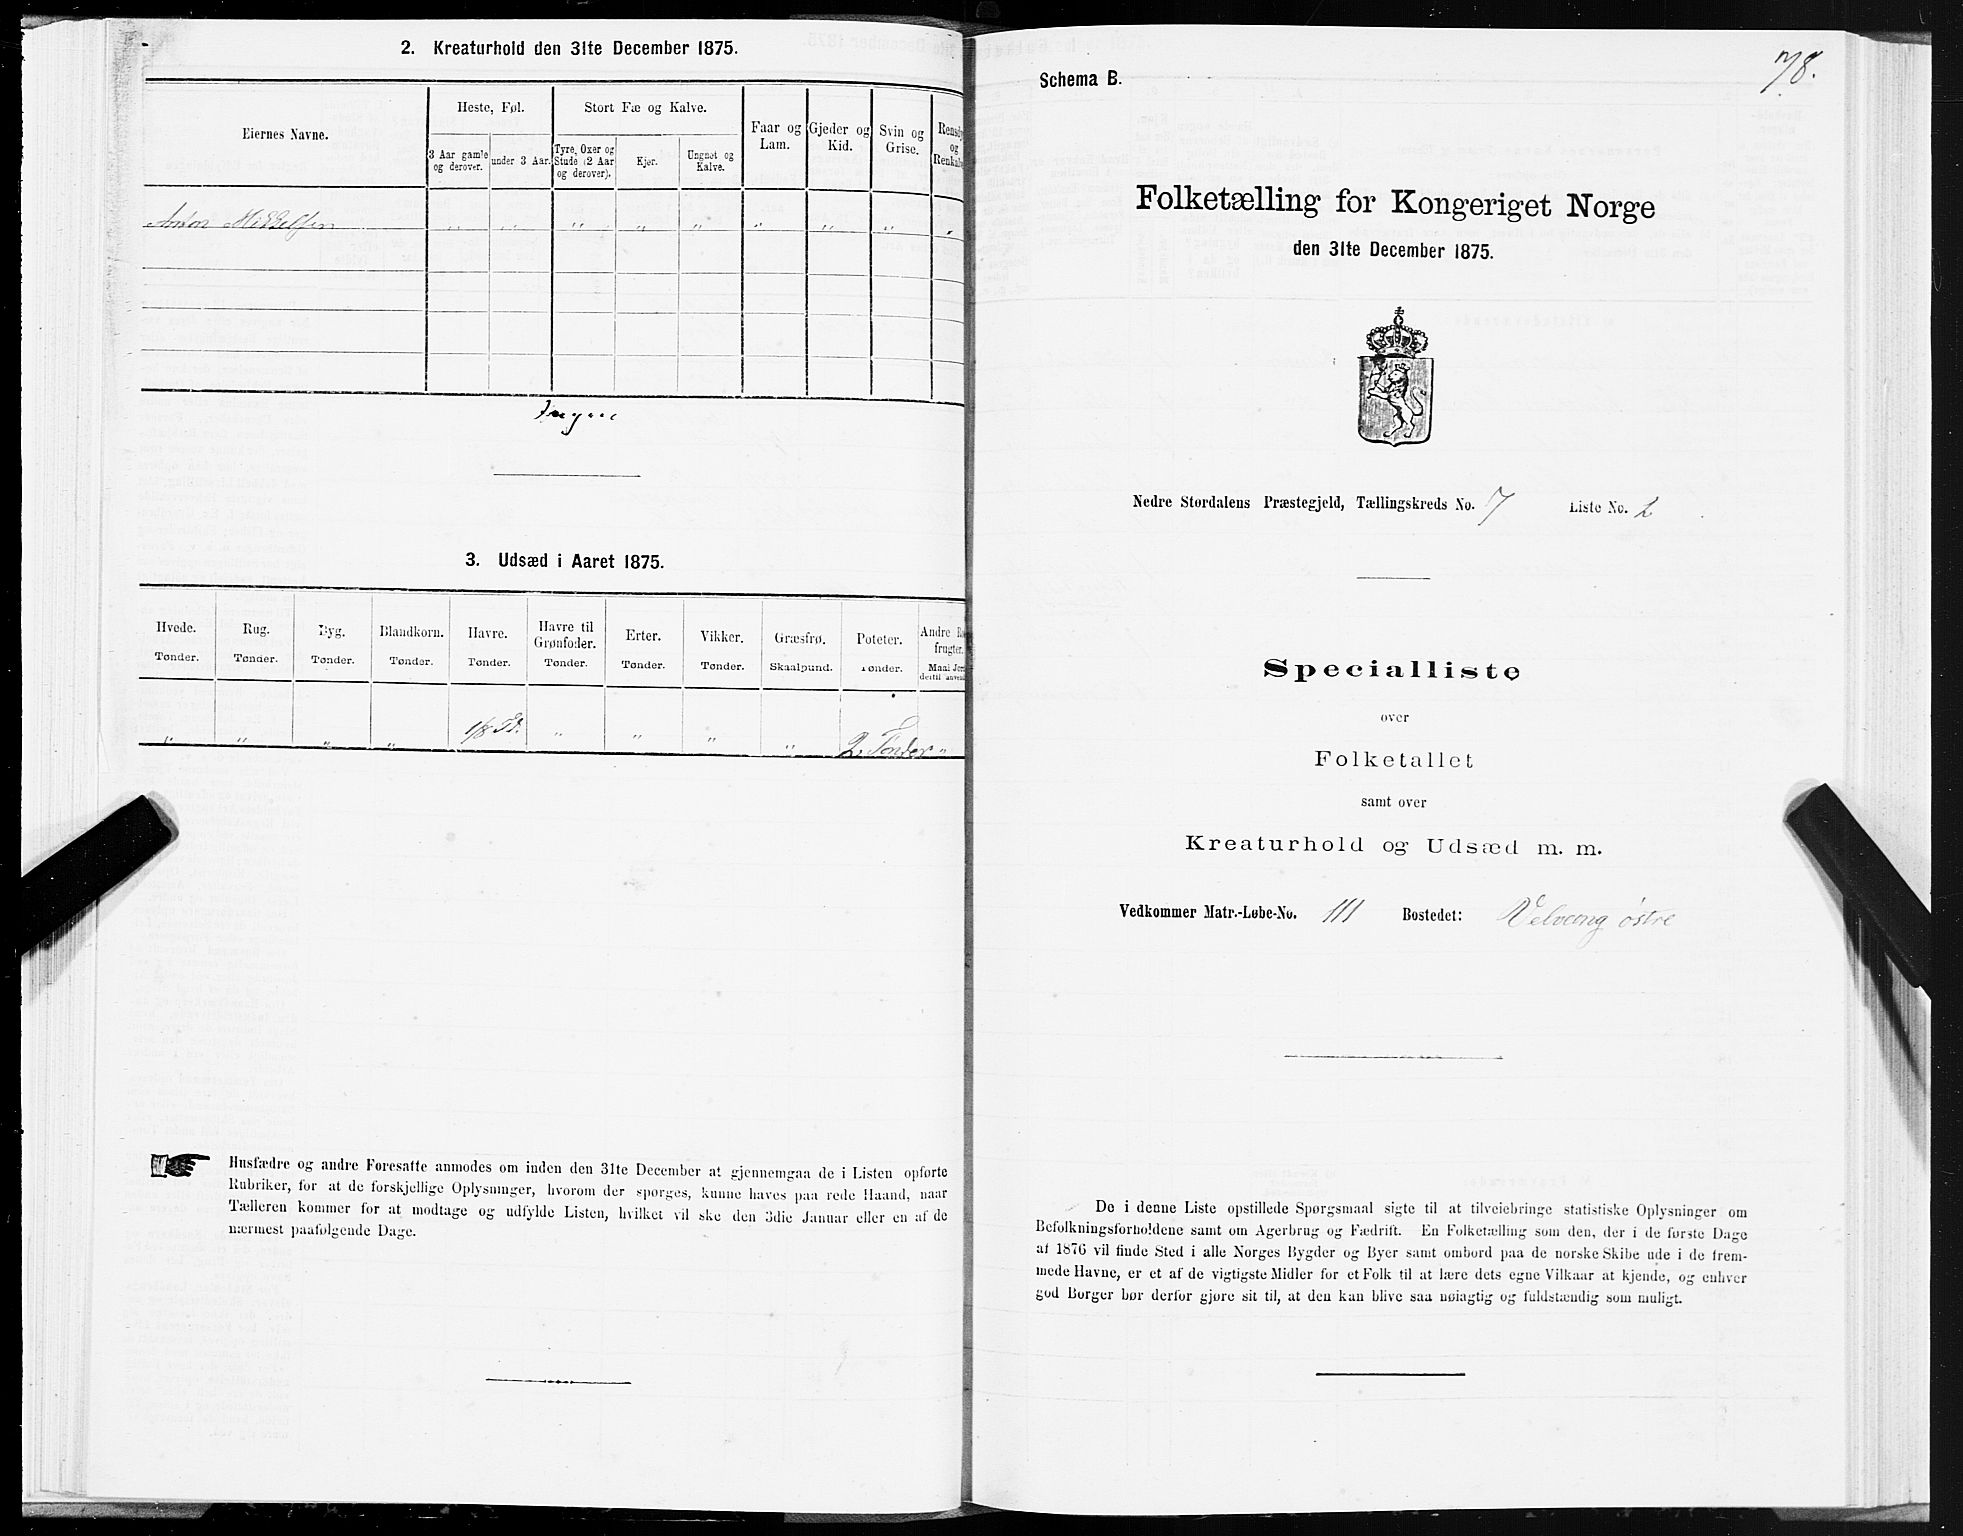 2. Kreaturhold den 31te December 1875.
Eiernes Navne.
Heste, Føl.
3 Aar gamle og derover.
under 3 Aar.
Stort Fæ og Kalve.
Tyre, Oxer og Stude (2 Aar og derover).
Kjør.
Ungnøt og Kalve.
Faar og Lam.
Gjeder og Kid.
Svin og Grise.
og
Anton Mikkelsen " " " " " " " " "
Ingen
3. Udsæd i Aaret 1875.
Hvede. Rug. Byg. Blandkorn. Havre. Havre til Grønfoder. Erter. Vikker. Græsfrø. Poteter. Andre
Tønder. Tønder. Tønder. Tønder. Tønder. Tønder. Tønder. Tønder. Skaalpund. Tønder. Maal
" " " " 1/8 Td. " " " " 2 Tønder "
Husfædre og andre Foresatte anmodes om inden den 31te December at gjennemgaa de i Listen opførte
Rubriker, for at de forskjellige Oplysninger, hvorom der spørges, kunne haves paa rede Haand, naar
Tælleren kommer for at modtage og udfylde Listen, hvilket vil ske den 3die Januar eller en af de
nærmest paafølgende Dage.
78.
Schema B.
Folketælling for Kongeriget Norge
den 31te December 1875.
Nedre Størdalens Præstegjeld, Tællingskreds No. 7 Liste No. 2
Specialliste
over
Folketallet
samt over
Kreaturhold og Udsæd m. m.
Vedkommer Matr.-Løbe-No. 111 Bostedet: Velvang østre
De i denne Liste opstillede Spørgsmaal sigte til at tilveiebringe statistiske Oplysninger om
Befolkningsforholdene samt om Agerbrug og Fædrift. En Folketælling som den, der i de første Dage
af 1876 vil finde Sted i alle Norges Bygder og Byer samt ombord paa de norske Skibe ude i de frem-
mede Havne, er et af de vigtigste Midler for et Folk til at lære dets egne Vilkaar at kjende, og enhver
god Borger bør derfor gjøre sit til, at den kan blive saa nøiagtig og fuldstændig som muligt.